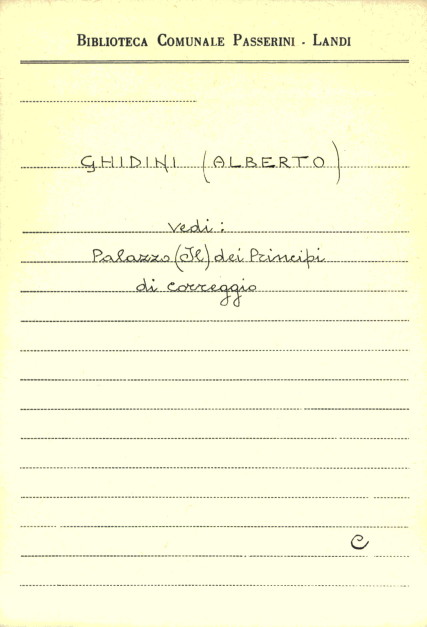 BIBLIOTECA COMUNALE PASSERINI - LANDI
GHIDINI (ALBERTO)
vedi:
Palazzo (Il) dei Principi
di correggio
C